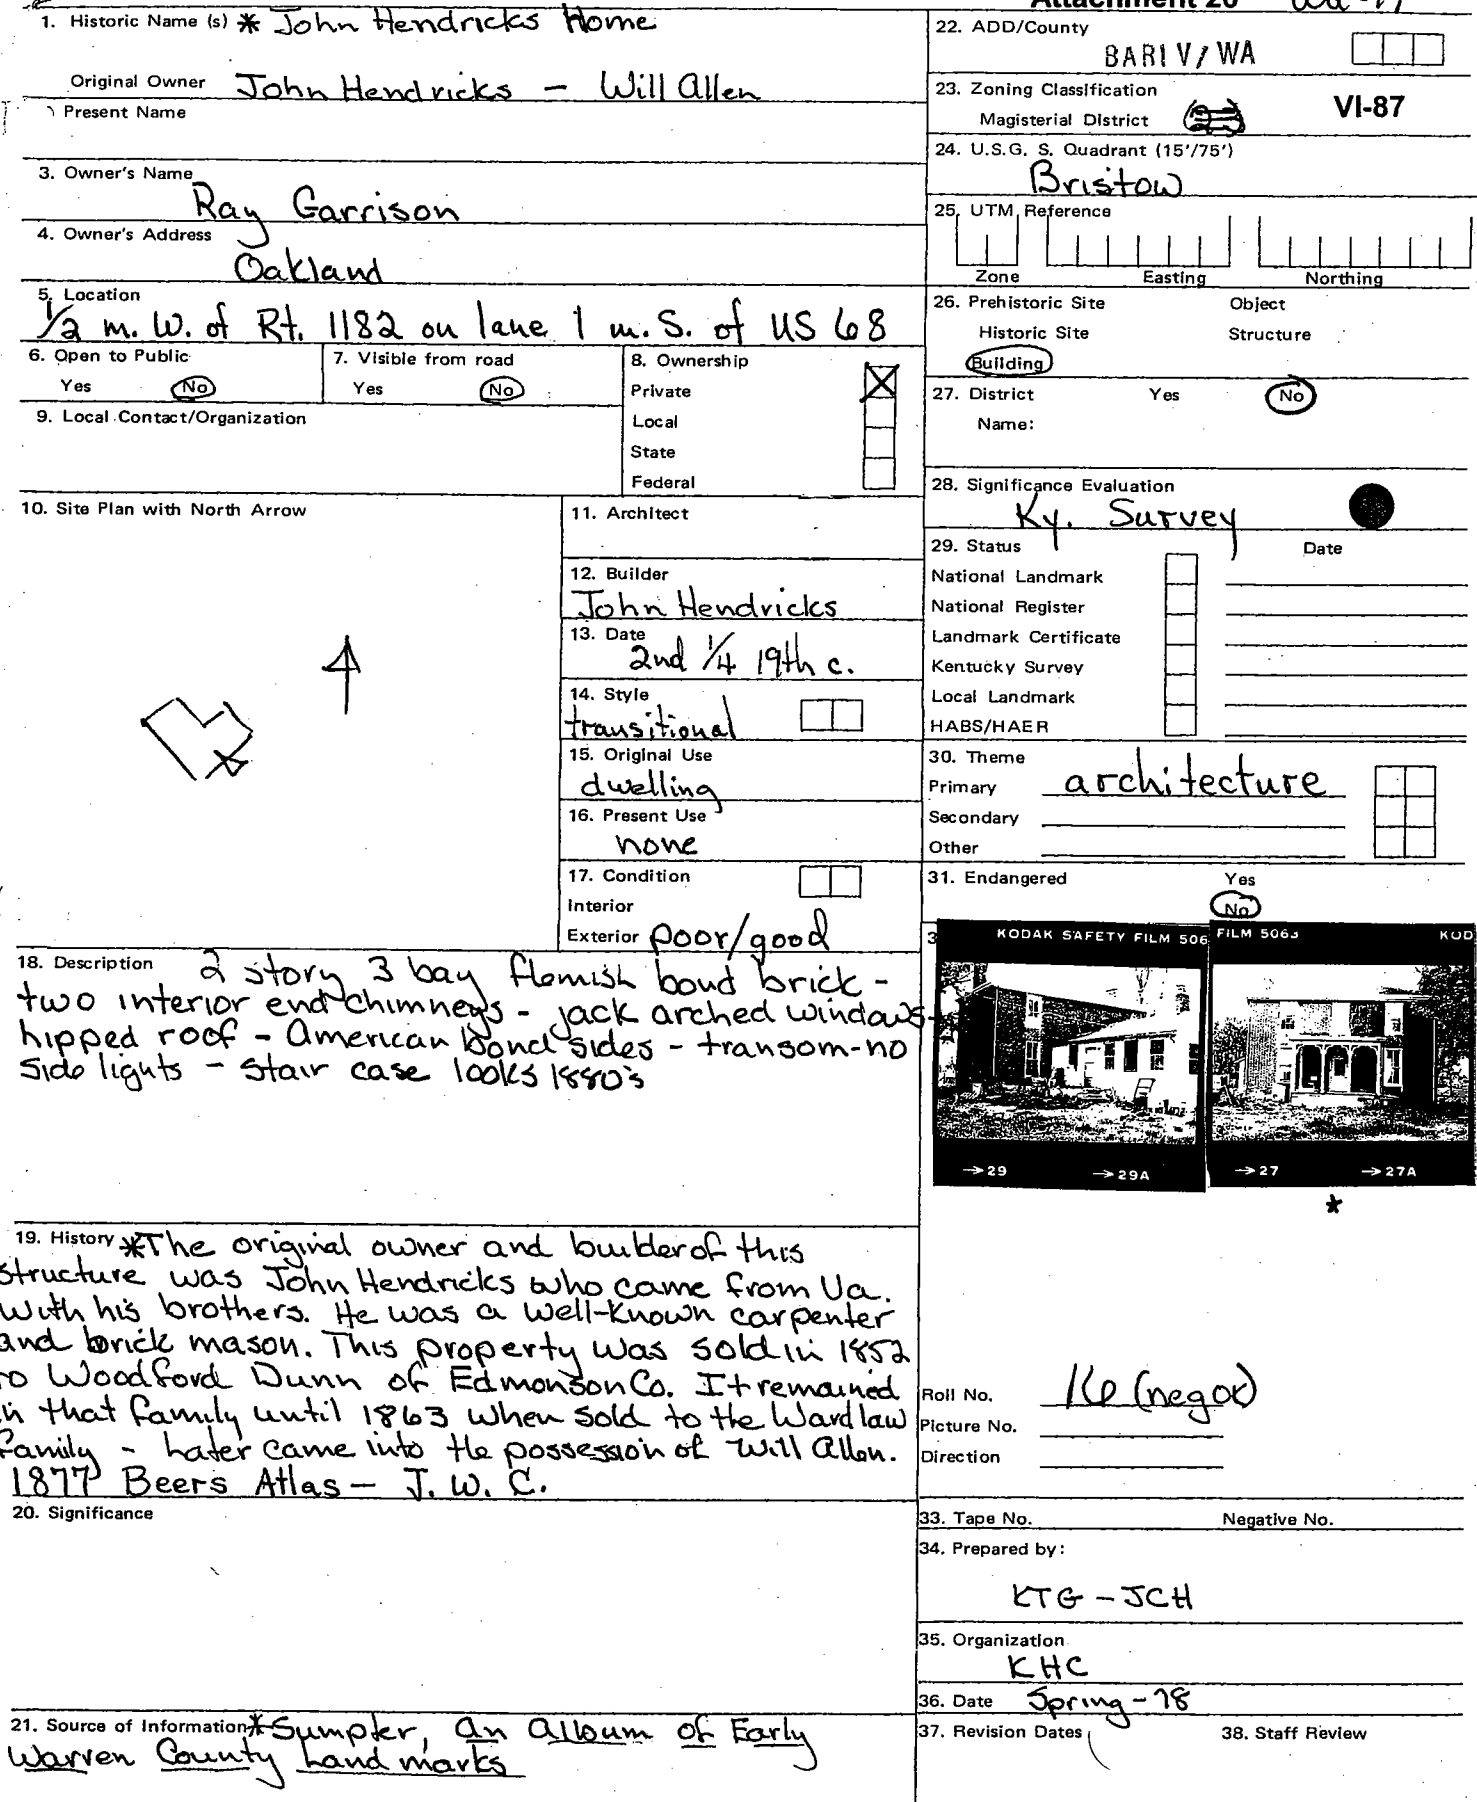 Attachment 20
1. Historic Name (s) * John Hendricks Home
Original Owner John Hendricks – Will Allen
Present Name
3. Owner's Name
Ray Garrison
4. Owner's Address
Oakland
5. Location
1/2 m. W. of Rt. 1182 on lane 1 m. S. of US 68
6. Open to Public
Yes No
7. Visible from road
Yes No
8. Ownership
Private
Local
State
Federal
9. Local Contact/Organization
10. Site Plan with North Arrow
11. Architect
12. Builder
John Hendricks
13. Date
2nd 1/4 19th c.
14. Style
transitional
15. Original Use
dwelling
16. Present Use
none
17. Condition
Interior
Exterior poor/good
18. Description 2 story 3 bay flemish bond brick -
two interior end chimneys - jack arched windows -
hipped roof - American bond sides - transom - no
side lights - stair case looks 1880's
19. History *The original owner and builder of this
structure was John Hendricks who came from Va.
with his brothers. He was a well-known carpenter
and brick mason. This property was sold in 1852
to Woodford Dunn of Edmonson Co. It remained
in that family until 1863 when sold to the Wardlaw
family - Later came into the possession of Will Allen.
1877 Beers Atlas – J. W. C.
20. Significance
21. Source of Information *Sumpter, An Album of Early
Warren County Landmarks
22. ADD/County
BARIV/WA
23. Zoning Classification
Magisterial District
VI-87
24. U.S.G. S. Quadrant (15'/75')
Bristow
25. UTM Reference
Zone Easting Northing
26. Prehistoric Site Object
Historic Site Structure
Building
27. District Yes No
Name:
28. Significance Evaluation
Ky. Survey
29. Status Date
National Landmark
National Register
Landmark Certificate
Kentucky Survey
Local Landmark
HABS/HAER
30. Theme
Primary architecture
Secondary
Other
31. Endangered Yes
No
KODAK SAFETY FILM 506
FILM 5063
KOD
→29 →29A
→27 →27A
*
Roll No. 16 (neg ok)
Picture No.
Direction
33. Tape No. Negative No.
34. Prepared by:
KTG – JCH
35. Organization
KHC
36. Date Spring - 78
37. Revision Dates
38. Staff Review